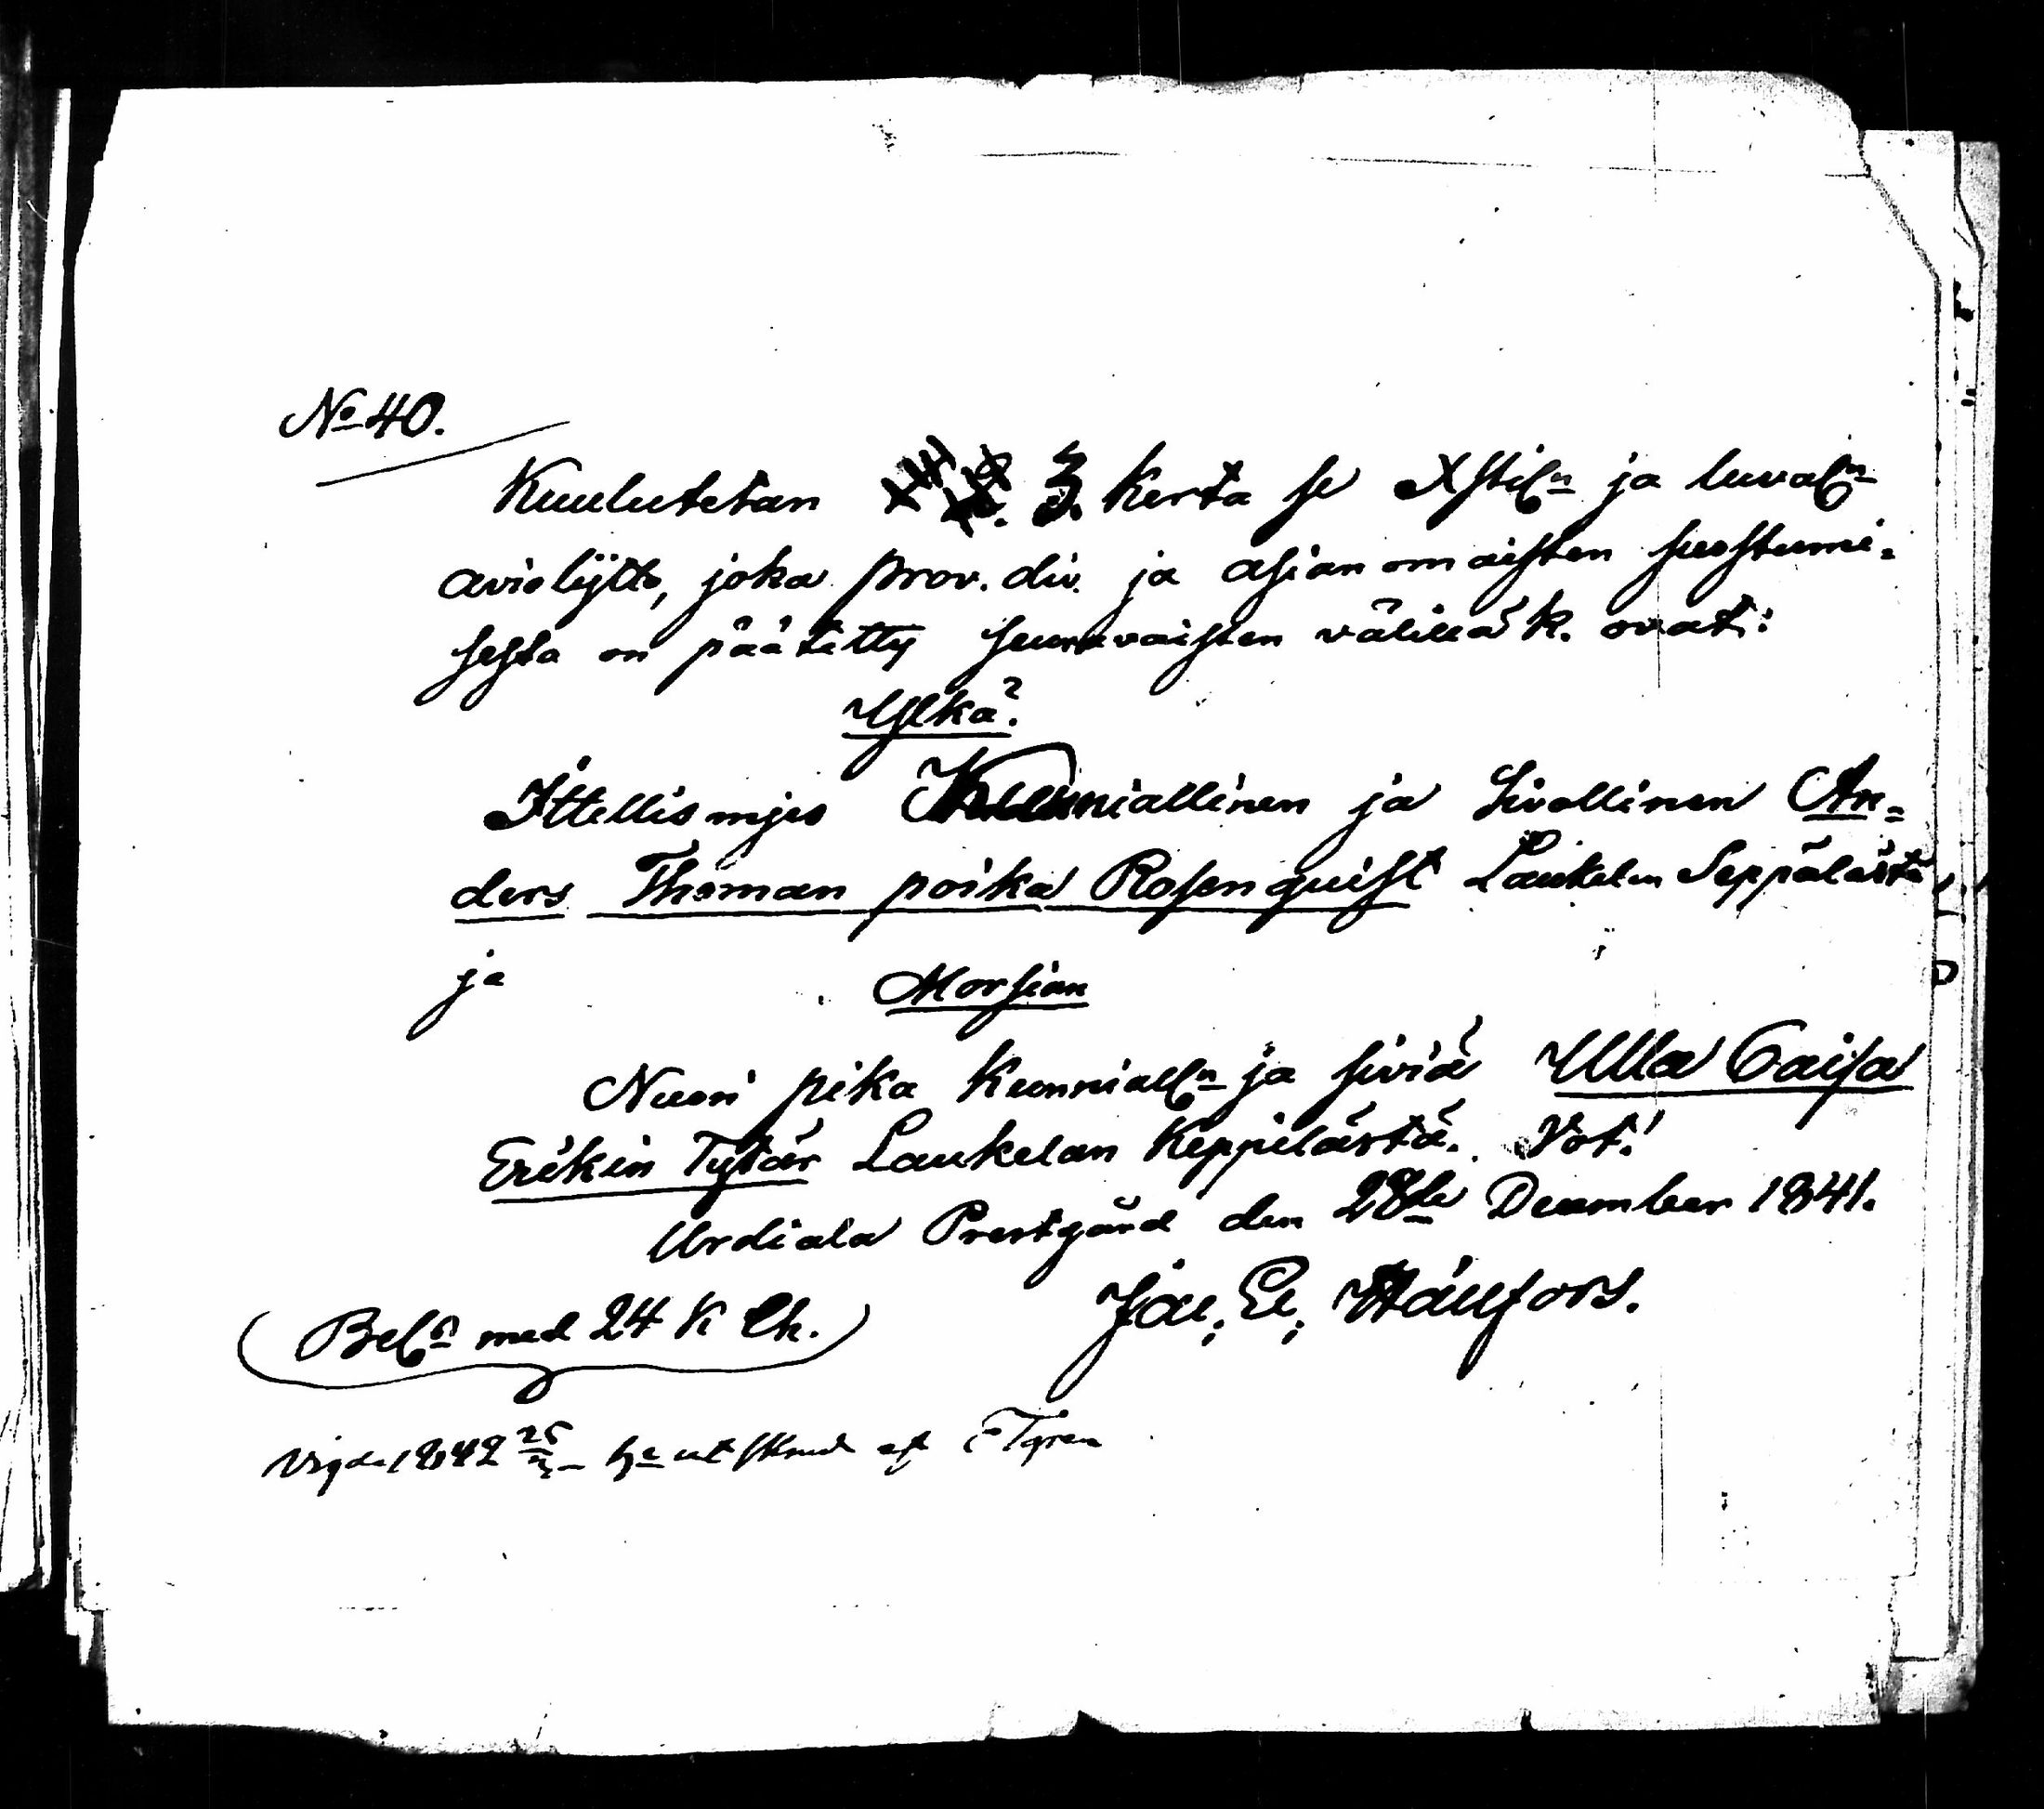 No 40.
Kuulutetan 3. kerta se Xstiln ja luvaln
aviolijtto, joka prov. div. ja asianomaisten suostumi=
sesta on päätetty seuravaisten välillä k. ovat:
Ylkä?
Ittellismjes Kunniallinen ja Sivollinen An=
ders Thoman poika Rosenquist Laukelan Seppälästä
ja
Morsian
Nuori pika Kunnialln ja siviä Ulla Caisa
Erikin Tytär Laukelan Keppilästä. Vot!
Urdiala Prestgård den 28de December 1841.
Jac; Er; Hällfors.
(Beln med 24 K Ch.)
Vigda 1842 25 af